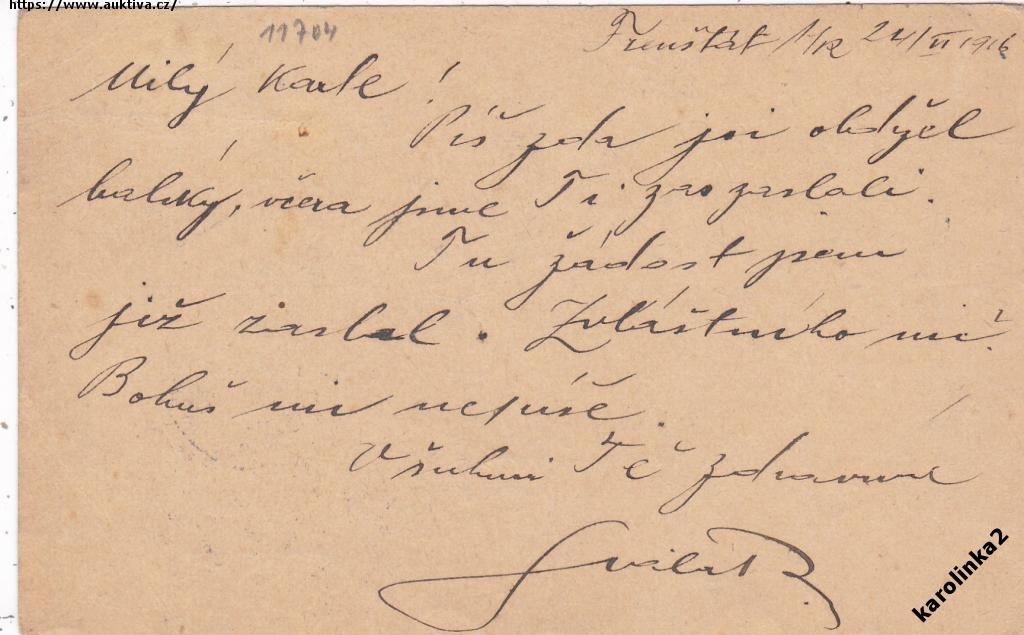 https://www.auktiva.cz/
11704
Frenštát 24/II 1916
Milý Karle!
Piš zda jsi obdržel
balíky, včera jsme Ti zas zaslali.
Tu žádost jsem
již zaslal. Zvláštního nic.
Bohuš mi nepíše.
Všichni Tě zdravíme
karolinka2